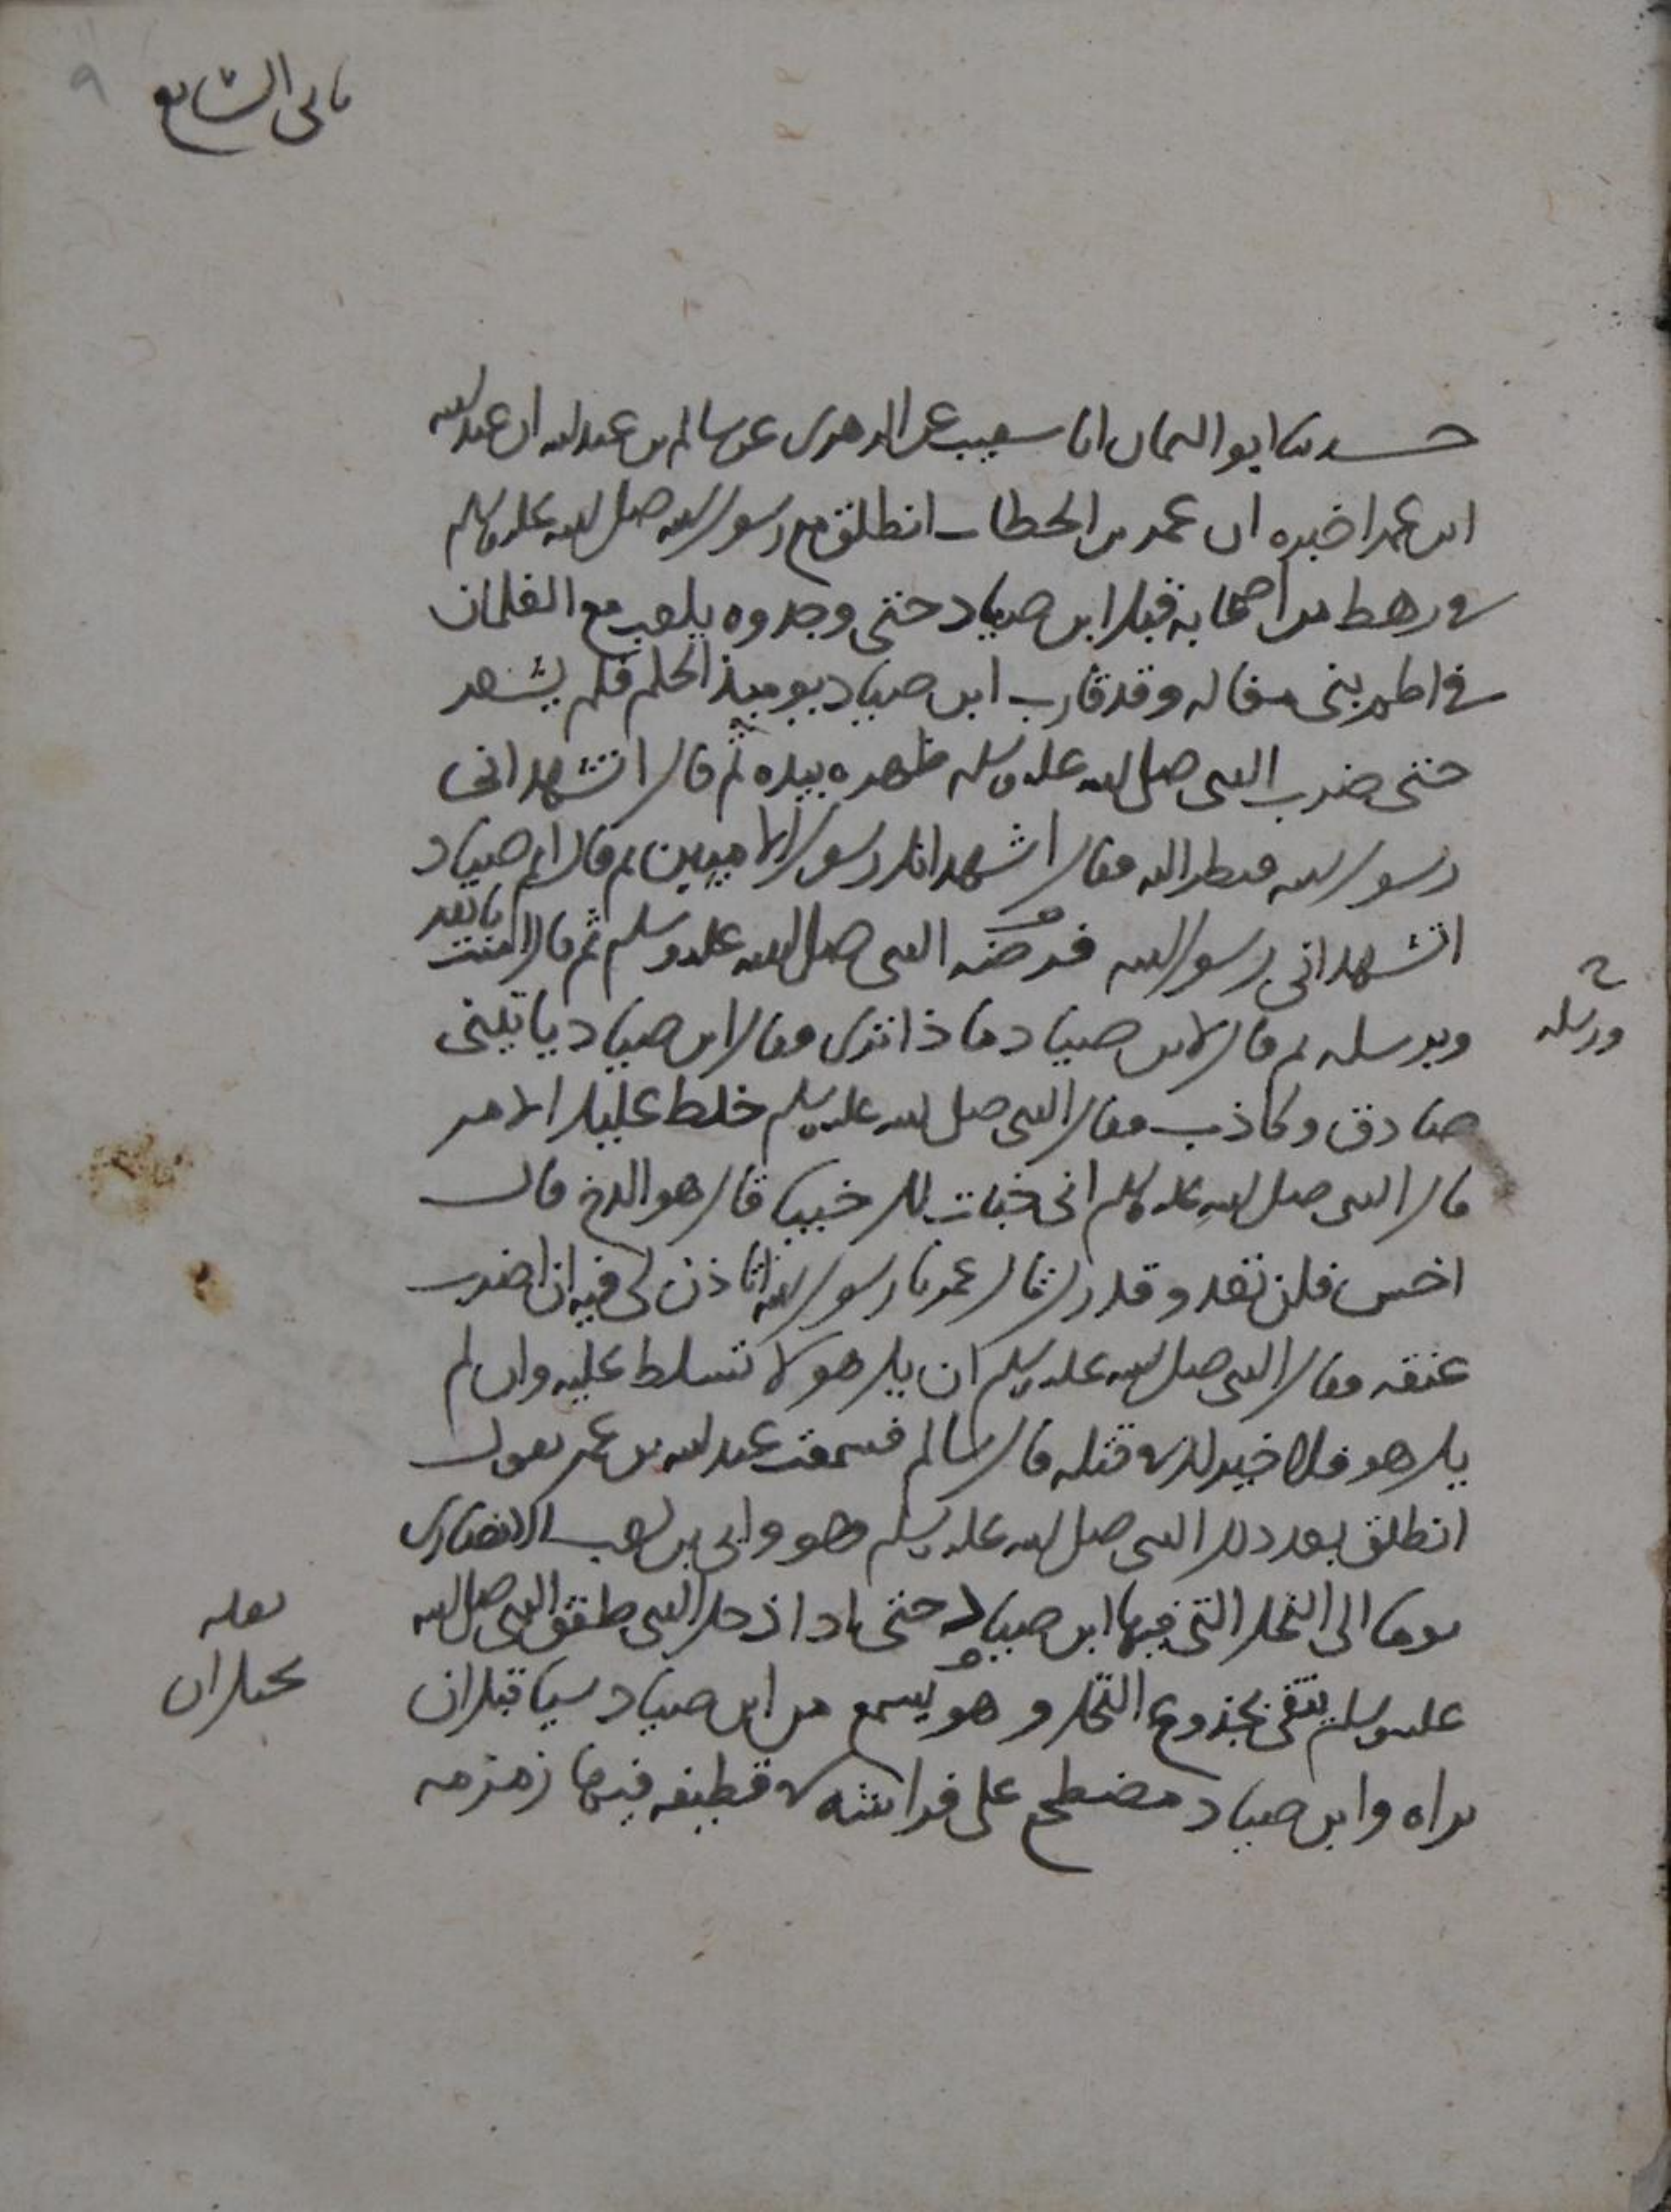 ثانى السابع
٩
حدثنا ابو اليمان انا شعيب عن الزهرى عن سالم بن عبد الله ان عبد الله
ابن عمر اخبره ان عمر بن الخطاب انطلق مع رسول الله صلى الله عليه وسلم
فى رهط من اصحابه قبل ابن صياد حتى وجدوه يلعب مع الغلمان
فى اطم بنى مغاله وقد قارب ابن صياد يوميذ الحلم فلم يشعر
حتى ضرب النبى صلى الله عليه وسلم ظهره بيده ثم قال اتشهد انى
رسول الله فنظر اليه فقال اشهد انك رسول الاميين ثم قال ابن صياد
اتشهد انى رسول الله فرضه النبى صلى الله عليه وسلم ثم قال امنت بالله
وبرسله ثم قال لابن صياد ماذا ترى فقال ابن صياد ياتينى
ورسله
صادق وكاذب فقال النبى صلى الله عليه وسلم خلط عليك الامر
قال النبى صلى الله عليه وسلم انى خبات لك خبيا قال هو الدخ قال
اخس فلن تعدو قدرك قال عمر يا رسول الله اتاذن لى فيه ان اضرب
عنقه فقال النبى صلى الله عليه وسلم ان يك هو لا تسلط عليه وان لم
يك هو فلا خير لك فى قتله قال سالم فسمعت عبد الله بن عمر يقول
انطلق بعد ذلك النبى صلى الله عليه وسلم هو وابى بن كعب الانصارى
يوما الى النخل التى فيها ابن صياد حتى اذا دخل النبى طفق النبى صلى الله
عليه وسلم يتقى بجذوع النخل وهو يسمع من ابن صياد شيا قبل ان
لعله
يختل ان
يراه وابن صياد مضطجع على فراشه فى قطيفه فيها زمزمه